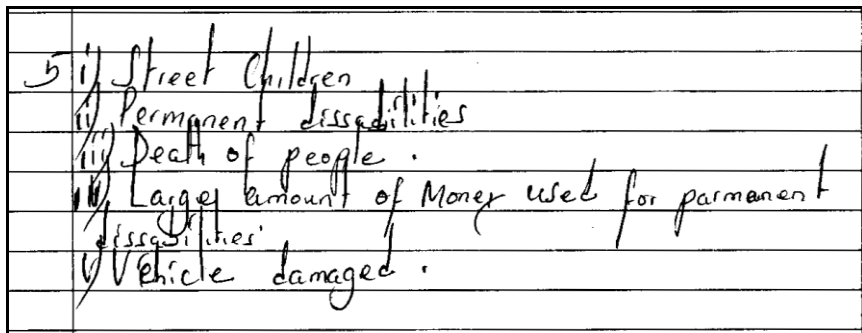 5 i) Street Children
ii) Permanent dissabilities
iii) Death of people .
iv) Larger amount of Money used for parmanent
dissabilities
v) Vehicle damaged .